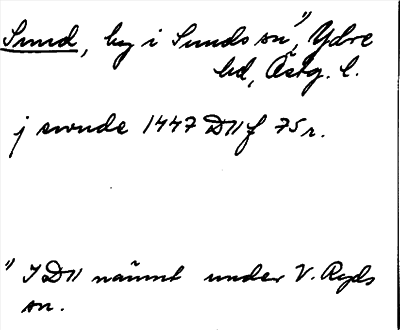 Sund, by i Sunds sn", Ydre
hd, Östg. l.
j swnde 1447 D11 f 75 r.
" I D11 nämnt under V. Ryds
sn.